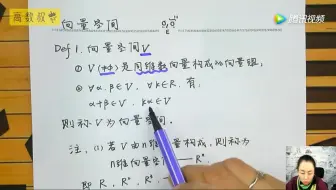 高数叔
向量空间
腾讯视频
Def 1. 向量空间 V
① V(≠φ) 是同维数向量构成的向量组,
② ∀α, β∈V, ∀k∈R, 有:
α+β∈V, kα∈V
则称 V 为向量空间,
注: (1) 若 V 由 n 维向量构成, 则称为
n 维向量空间
即 R, R²,